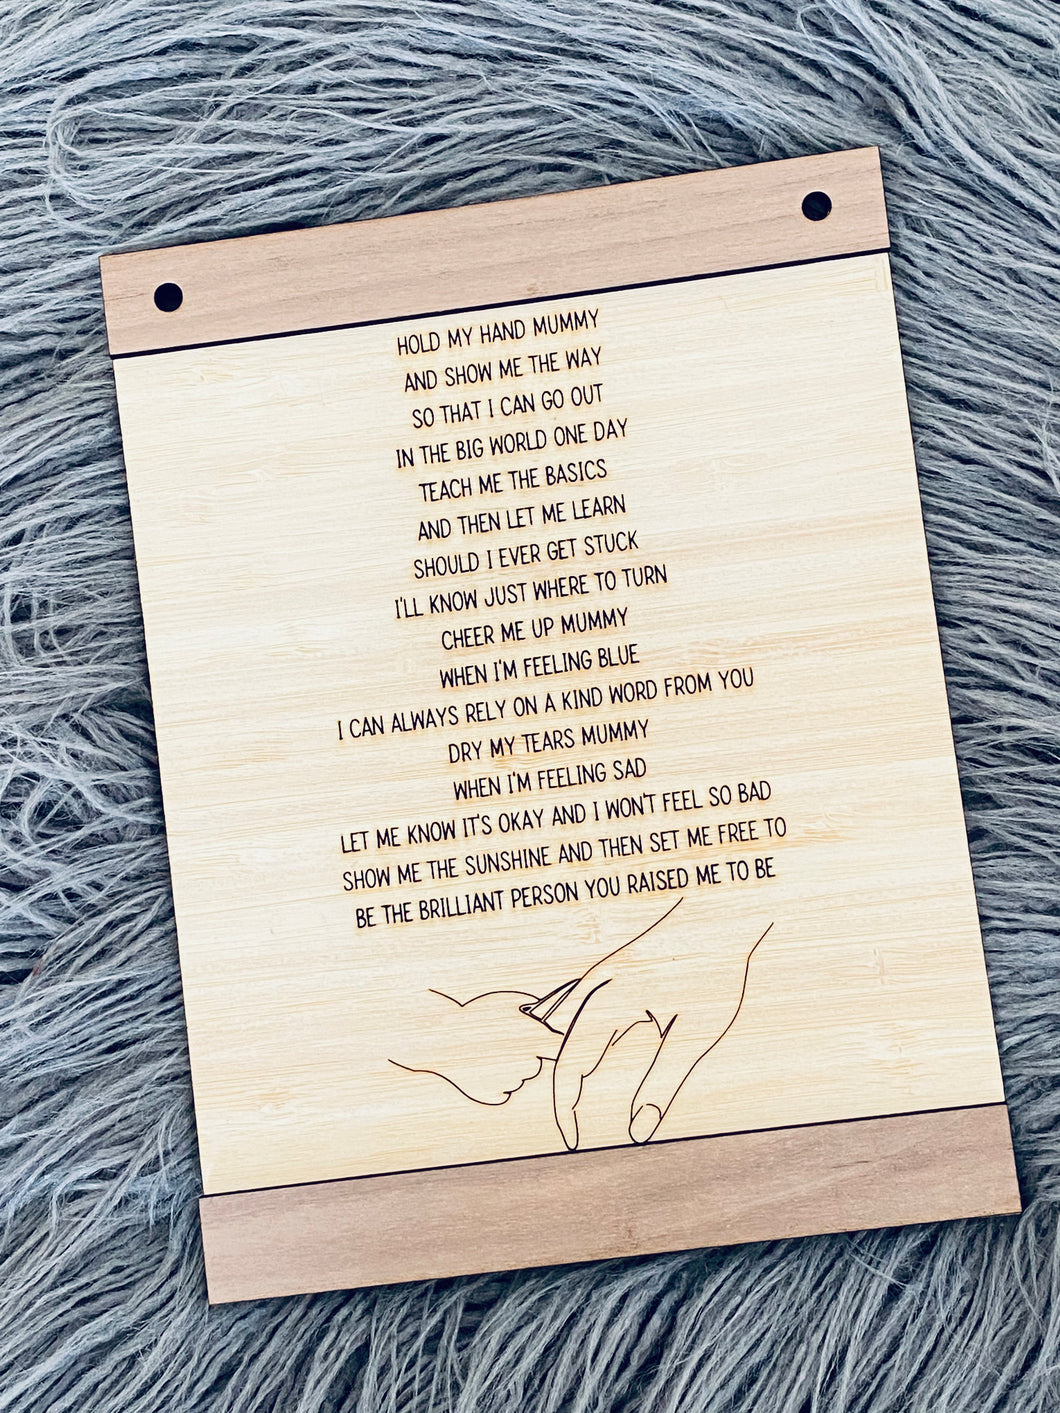 HOLD MY HAND MUMMY
AND SHOW ME THE WAY
SO THAT I CAN GO OUT
IN THE BIG WORLD ONE DAY
TEACH ME THE BASICS
AND THEN LET ME LEARN
SHOULD I EVER GET STUCK
I'LL KNOW JUST WHERE TO TURN
CHEER ME UP MUMMY
WHEN I'M FEELING BLUE
I CAN ALWAYS RELY ON A KIND WORD FROM YOU
DRY MY TEARS MUMMY
WHEN I'M FEELING SAD
LET ME KNOW IT'S OKAY AND I WON'T FEEL SO BAD
SHOW ME THE SUNSHINE AND THEN SET ME FREE TO
BE THE BRILLIANT PERSON YOU RAISED ME TO BE